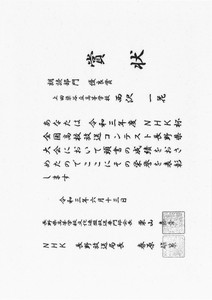 賞状
朗読部門 優良賞
上田染谷丘高等学校 西沢 一花
あなたは 令和三年度 NHK杯
全国高校放送コンテスト長野県
大会において頭書の成績をおさ
めたのでここにその栄誉を表彰
します
令和三年六月十三日
長野県高等学校文化連盟放送専門部会長 栗山
NHK 長野放送局長 春原